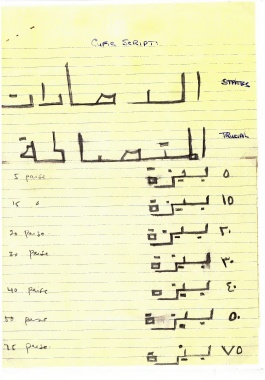 CUFIC SCRIPTS
الامارات STATES
المتصالحة TRUCIAL
5 paise ٥ بيزة
15 " ١٥ بيزة
20 paise ٢٠ بيزة
30 paise ٣٠ بيزة
40 paise ٤٠ بيزة
50 paise ٥٠ بيزة
75 paise ٧٥ بيزة